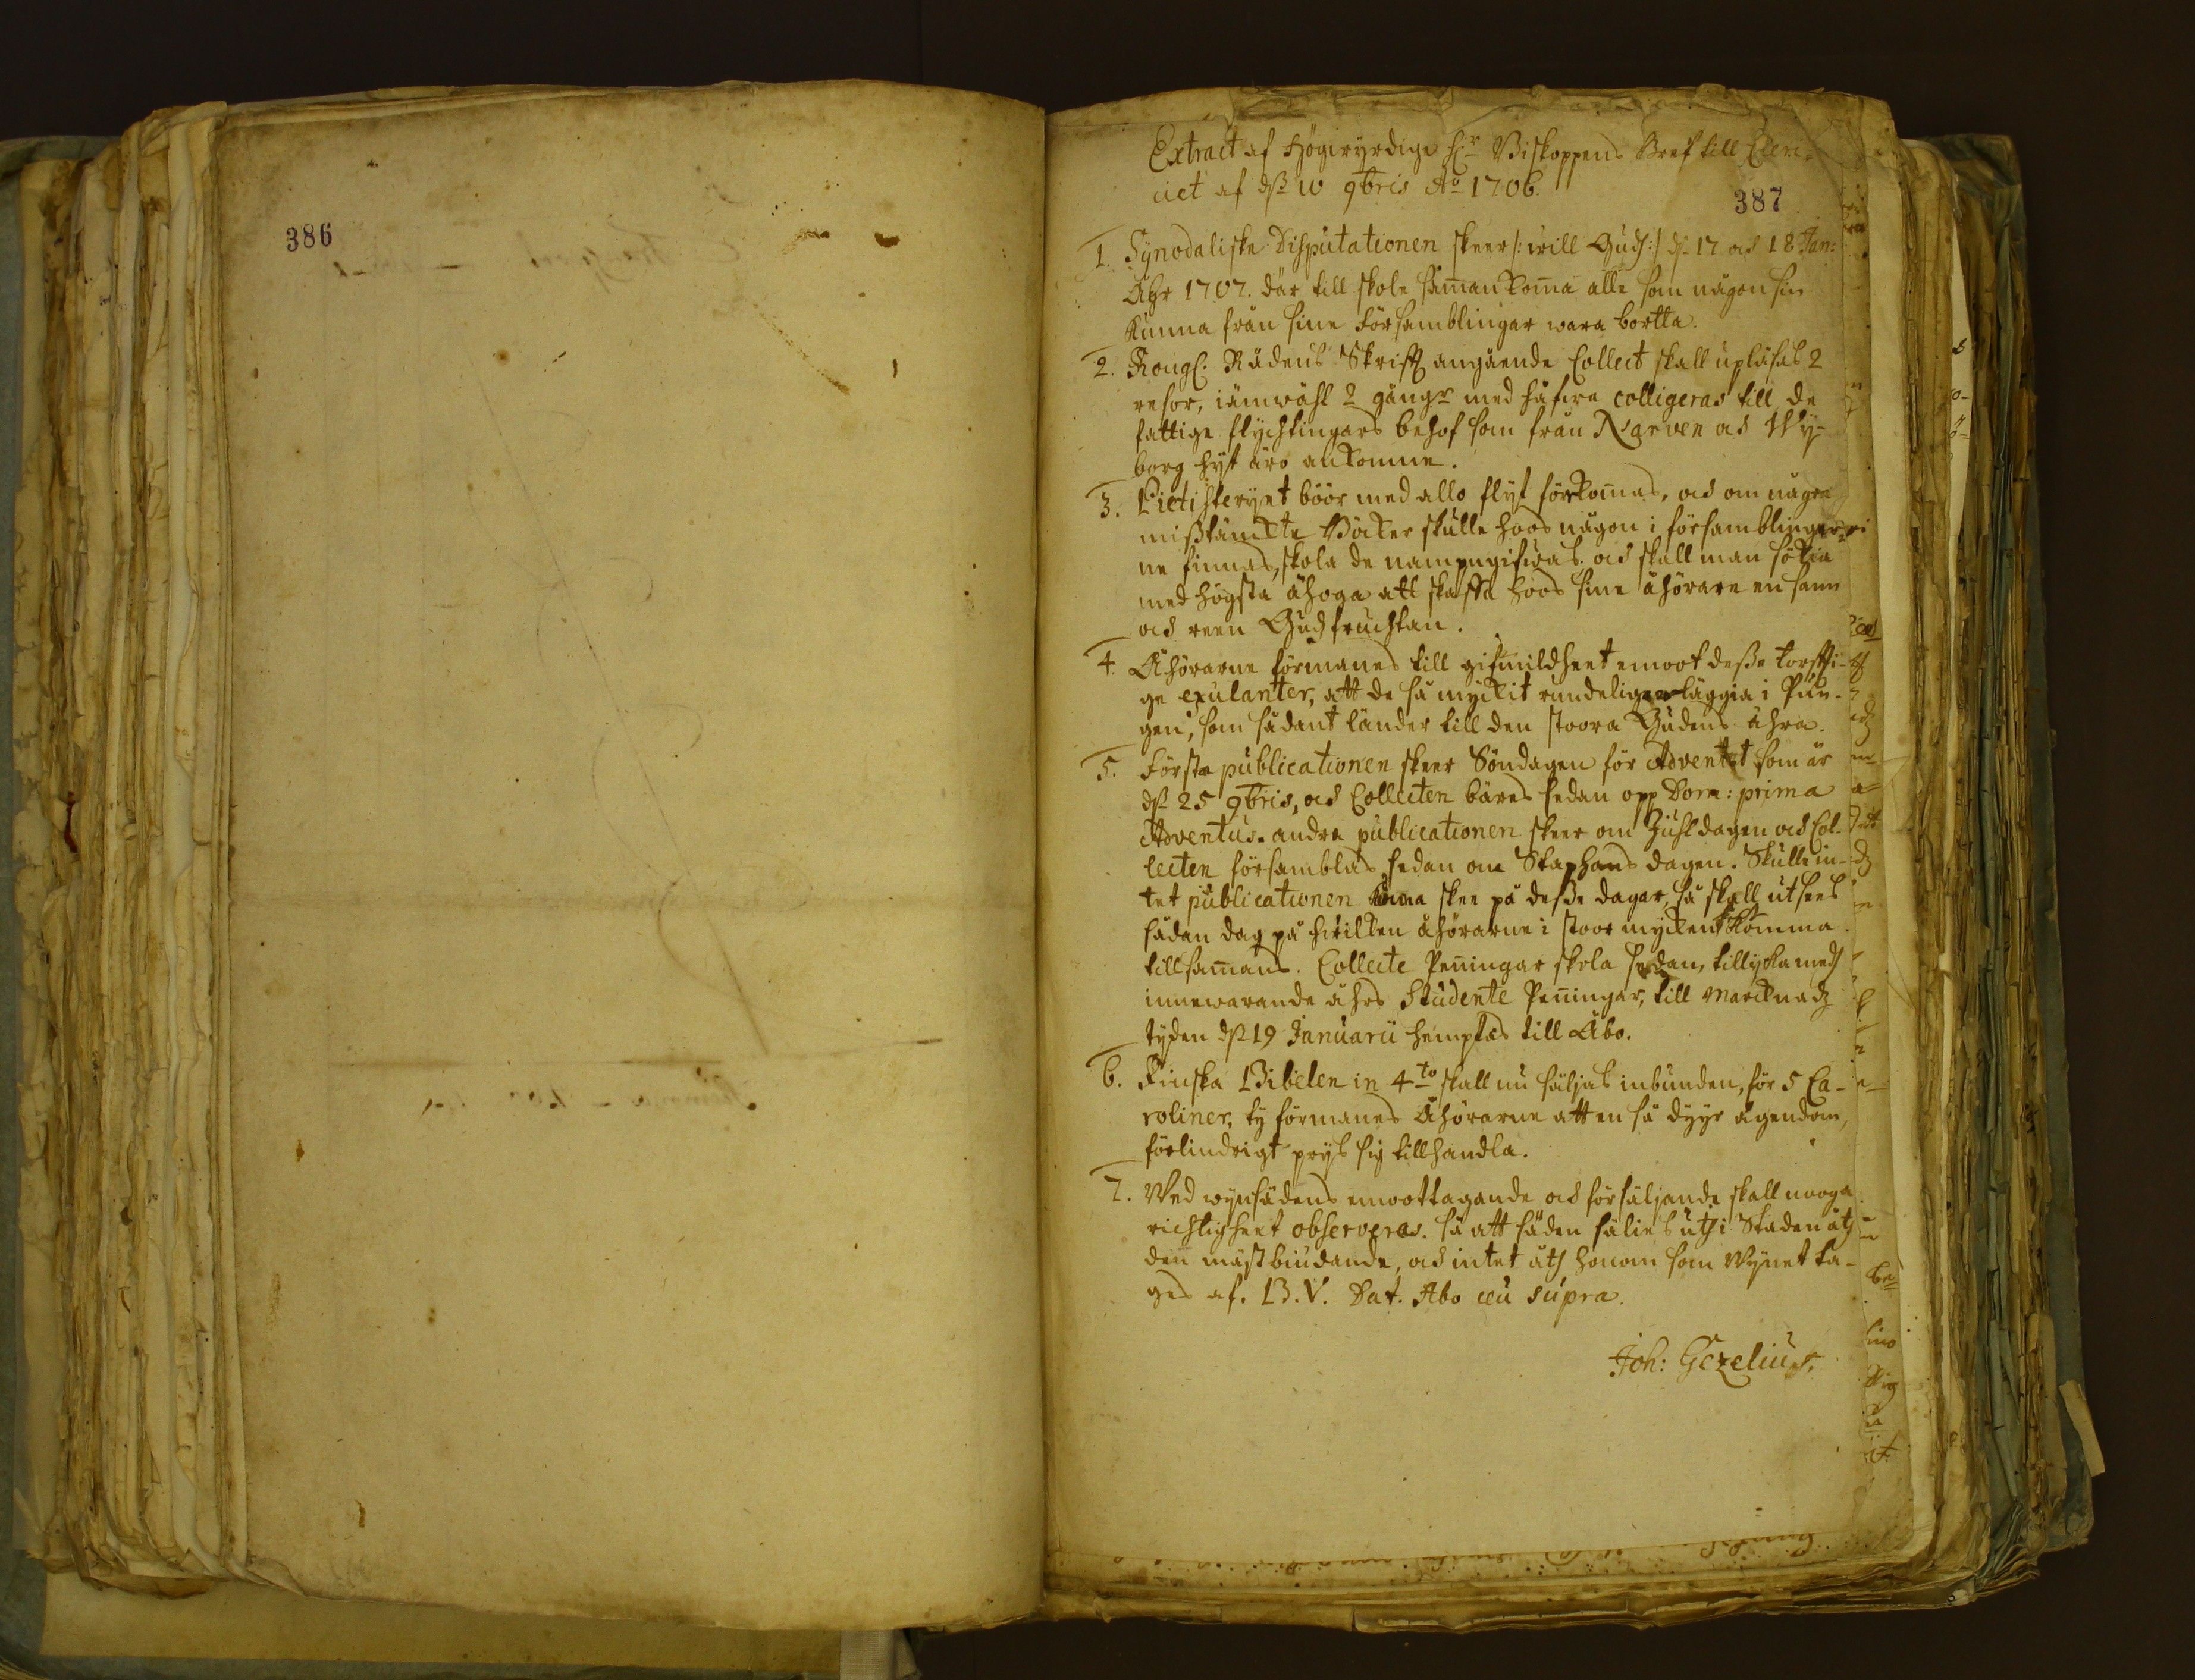 386
387
Extract af Högwyrdige H:r Biskoppens Bref till Cleri-
ciet af d. 10 9bris Ao 1706.
1. Synodaliske Disputationen skeer /: will Gudh :/ d. 17 och 18 Jan:
Åhr 1707. där till skole sammankomma alle som någonsin
kunna från sine Församblingar wara bortta.
2. Kongl. Rådens Skrifft angående Collect skall upläsas 2
resor, iämwähl 2 gångr med håfwe colligeras till de
fattige flychtingars behof som från Narven och Wy-
borg hyt äro ankomne.
3. Pietisteryet böör med allo flyt förekommas, och om någre
misstänckte Böcker skulle hoos någon i församblingar-
ne finnas, skola de nampngifwas. och skall man sökia
med högsta åhoga att skaffa hoos sine åhörare en sann
och reen Gudfruchtan.
4. Åhörarne förmanes till gifmildheet emoot desse torffti-
ge exulanter, att de så myckit rundeligare läggia i Pun-
gen, som sådant länder till den stoora Gudens ähra.
5. Första publicationen skeer Söndagen för Adventet som är
d. 25 9bris, och Collecten bäres sedan opp Dom: prima
Adventus. andra publicationen skeer om Juhldagen och Col-
lecten församblas sedan om Staphans dagen. Skulle in-
tet publicationen kunna skee på desse dagar, så skall utsees
sådan dag på hwilken åhörarne i stoor myckenheet komma
tillsammans. Collecte Penningar skola sedan, tillyka medh
innewarande åhrs Studente Penningar, till Marcknadz
tyden d. 19 Januarii hemptas till Åbo.
6. Finska Bibelen in 4to skall nu säljas inbunden, för 5 Ca-
roliner, ty förmanes Åhörarne att en så dyyr ägendom,
för lindrigt prys sig tillhandla.
7. Wed wynsädens emoottagande och försäljande skall nooga
richtigheet observeras. så att säden sälies uthi Staden åth
den mäst biudande, och intet åth honom som Wynet ta-
ges af. B.V. Dat. Abo ceu supra.
Joh: Gezelius.